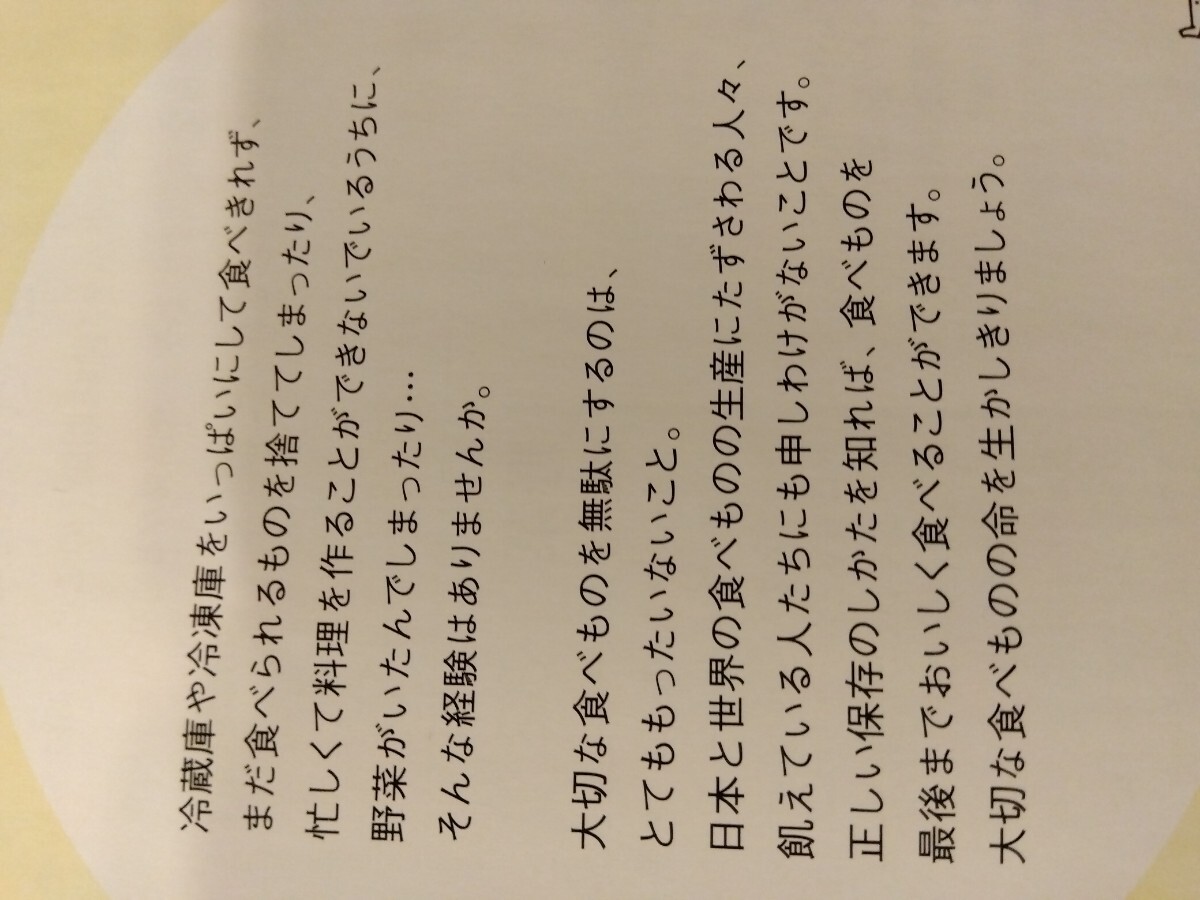 冷蔵庫や冷凍庫をいっぱいにして食べきれず、
まだ食べられるものを捨ててしまったり、
忙しくて料理を作ることができないでいるうちに、
野菜がいたんでしまったり…
そんな経験はありませんか。
大切な食べものを無駄にするのは、
とてももったいないこと。
日本と世界の食べものの生産にたずさわる人々、
飢えている人たちにも申しわけがないことです。
正しい保存のしかたを知れば、食べものを
最後までおいしく食べることができます。
大切な食べものの命を生かしきりましょう。